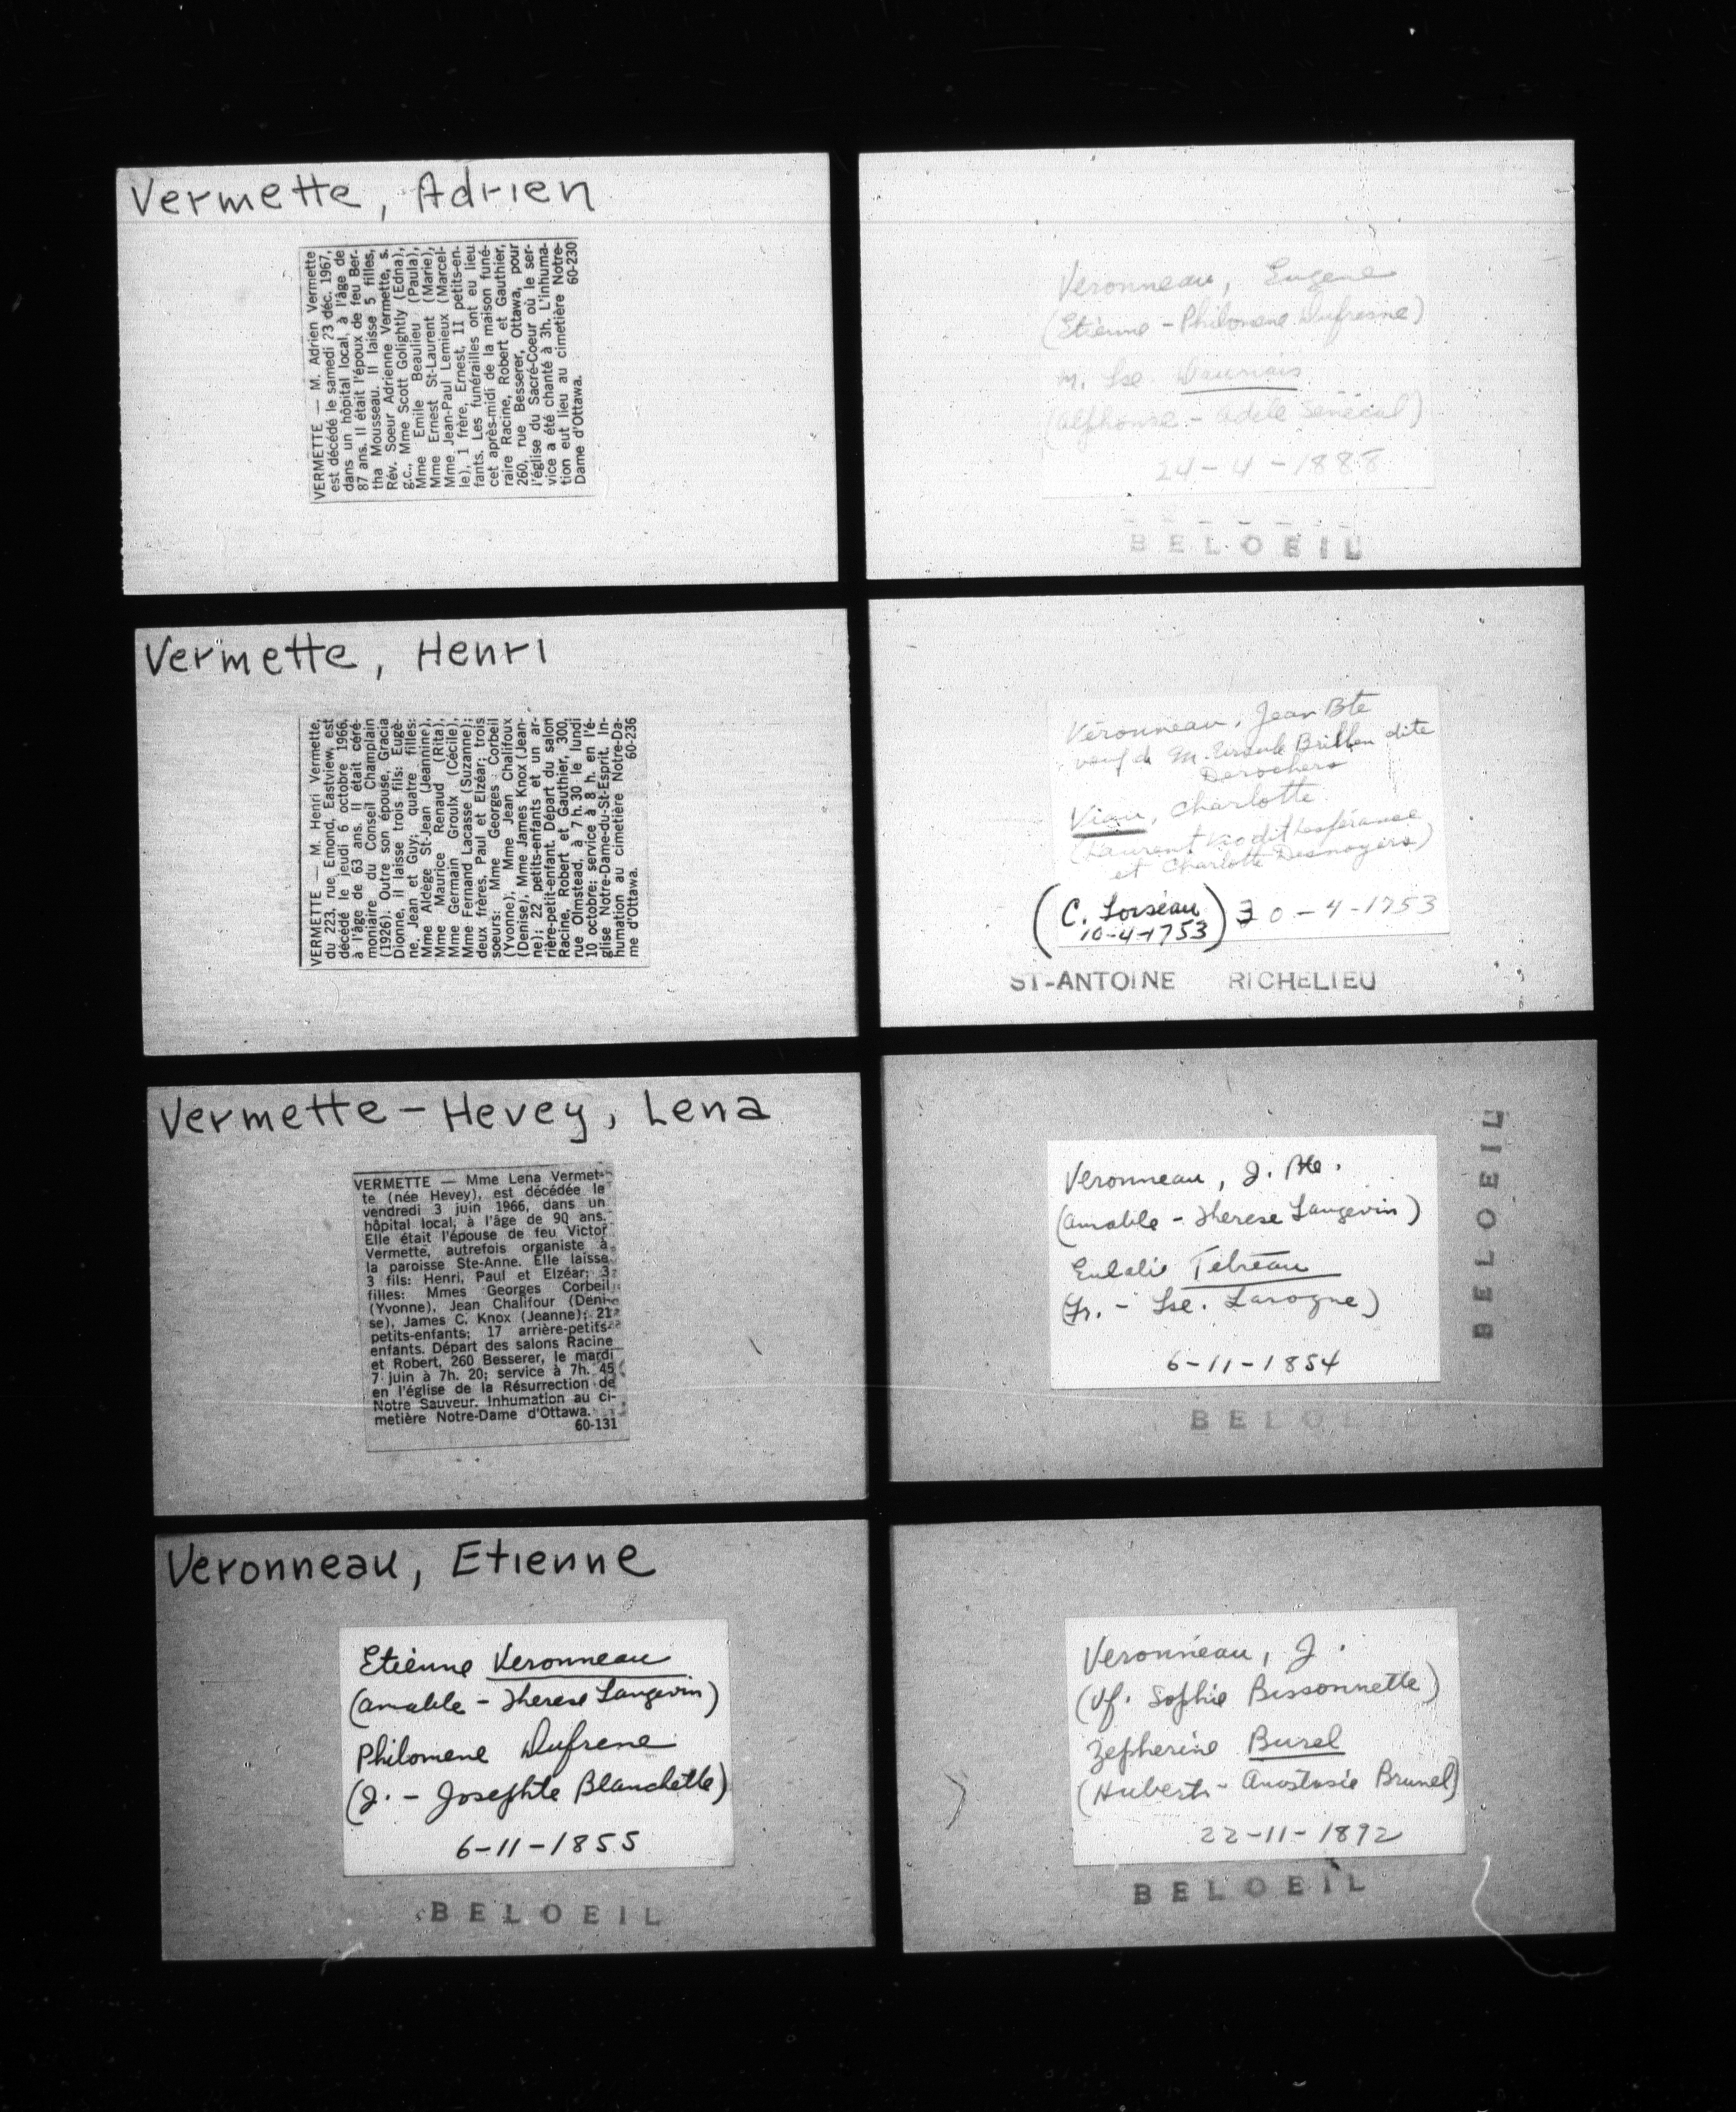 Vermette, Adrien
VERMETTE — M. Adrien Vermette
est décédé le samedi 23 déc. 1967,
dans un hôpital local, à l'âge de
87 ans. Il était l'époux de feu Ber-
tha Mousseau. Il laisse 5 filles,
Rév. Soeur Adrienne Vermette, s.
g.c., Mme Scott Golightly (Edna),
Mme Emile Beaulieu (Paula),
Mme Ernest St-Laurent (Marie),
Mme Jean-Paul Lemieux (Marcel-
le), 1 frère, Ernest, 11 petits-en-
fants. Les funérailles ont eu lieu
cet après-midi de la maison funé-
raire Racine, Robert et Gauthier,
260, rue Besserer, Ottawa, pour
l'église du Sacré-Coeur où le ser-
vice a été chanté à 3h. L'inhuma-
tion eut lieu au cimetière Notre-
Dame d'Ottawa. 60-230
Vermette, Henri
VERMETTE — M. Henri Vermette,
du 223, rue Emond, Eastview, est
décédé le jeudi 6 octobre 1966,
à l'âge de 63 ans. Il était céré-
moniaire du Conseil Champlain
(1926). Outre son épouse, Gracia
Dionne, il laisse trois fils: Eugè-
ne, Jean et Guy; quatre filles:
Mme Aldège St-Jean (Jeannine),
Mme Maurice Renaud (Rita),
Mme Germain Groulx (Cécile),
Mme Fernand Lacasse (Suzanne);
deux frères, Paul et Elzéar; trois
soeurs: Mme Georges Corbeil
(Yvonne), Mme Jean Chalifoux
(Denise), Mme James Knox (Jean-
ne); 22 petits-enfants et un ar-
rière-petit-enfant. Départ du salon
Racine, Robert et Gauthier, 300,
rue Olmstead, à 7 h. 30 le lundi
10 octobre; service à 8 h. en l'é-
glise Notre-Dame-du-St-Esprit. In-
humation au cimetière Notre-Da-
me d'Ottawa. 60-236
Vermette - Hevey, Lena
VERMETTE — Mme Lena Vermet-
te (née Hevey), est décédée le
vendredi 3 juin 1966, dans un
hôpital local, à l'âge de 90 ans.
Elle était l'épouse de feu Victor
Vermette, autrefois organiste à
la paroisse Ste-Anne. Elle laisse
3 fils: Henri, Paul et Elzéar; 3
filles: Mmes Georges Corbeil
(Yvonne), Jean Chalifour (Deni-
se), James C. Knox (Jeanne); 21
petits-enfants; 17 arrière-petits-
enfants. Départ des salons Racine
et Robert, 260 Besserer, le mardi
7 juin à 7h. 20; service à 7h. 45
en l'église de la Résurrection de
Notre Sauveur. Inhumation au ci-
metière Notre-Dame d'Ottawa.
60-131
Veronneau, Etienne
Etienne Veronneau
(Amable - Therese Langevin)
Philomene Dufrene
(J. - Josephte Blanchette)
6-11-1855
BELOEIL
Veronneau, Eugene
(Etienne - Philomene Dufresne)
m. Lse Daunais
(Alphonse - Adele Senécal)
24-4-1888
BELOEIL
Véronneau, Jean Bte
veuf de M. Ursule Brillon dite
Desrochers
Viau, Charlotte
(Laurent Viodit Lespérance
et Charlotte Desnoyers)
(C. Loiseau
10-4-1753) 30-4-1753
ST-ANTOINE RICHELIEU
Veronneau, J. Bte.
(Amable - Therese Langevin)
Eulalie Tétreau
(Fr. - Lse. Larogne)
6-11-1854
BELOEIL
BELOEIL
Veronneau, J.
(Vf. Sophie Bissonnette)
Zepherine Burel
(Hubert - Anastasie Brunel)
22-11-1892
BELOEIL